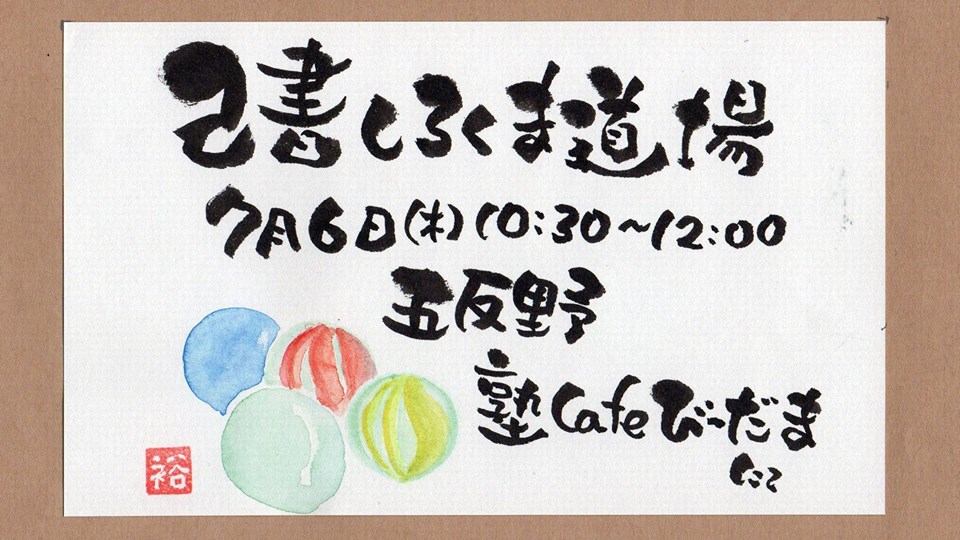 己書しろくま道場
7月6日(木)10:30～12:00
五反野
塾Cafeびーだま
にて
裕